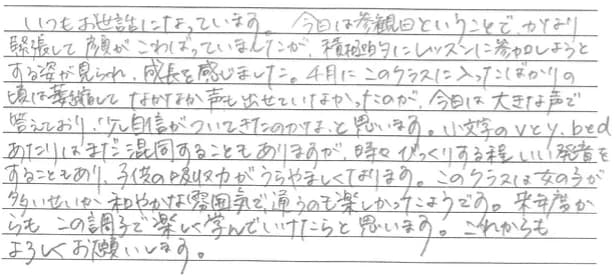 いつもお世話になっています。今日は参観日ということで、かなり
緊張して顔がこわばっていましたが、積極的にレッスンに参加しようと
する姿が見られ、成長を感じました。4月にこのクラスに入ったばかりの
頃は萎縮してなかなか声も出せていなかったのが、今日は大きな声で
答えており、少し自信がついてきたのかな、と思います。小文字のvとy、bとd
あたりはまだ混同することもありますが、時々びっくりする程いい発音を
することもあり、子供の吸収力がうらやましくなります。このクラスは女の子が
多いせいか、和やかな雰囲気で、通うのも楽しかったようです。来年度か
らも、この調子で楽しく学んでいけたらと思います。これからも
よろしくお願いします。